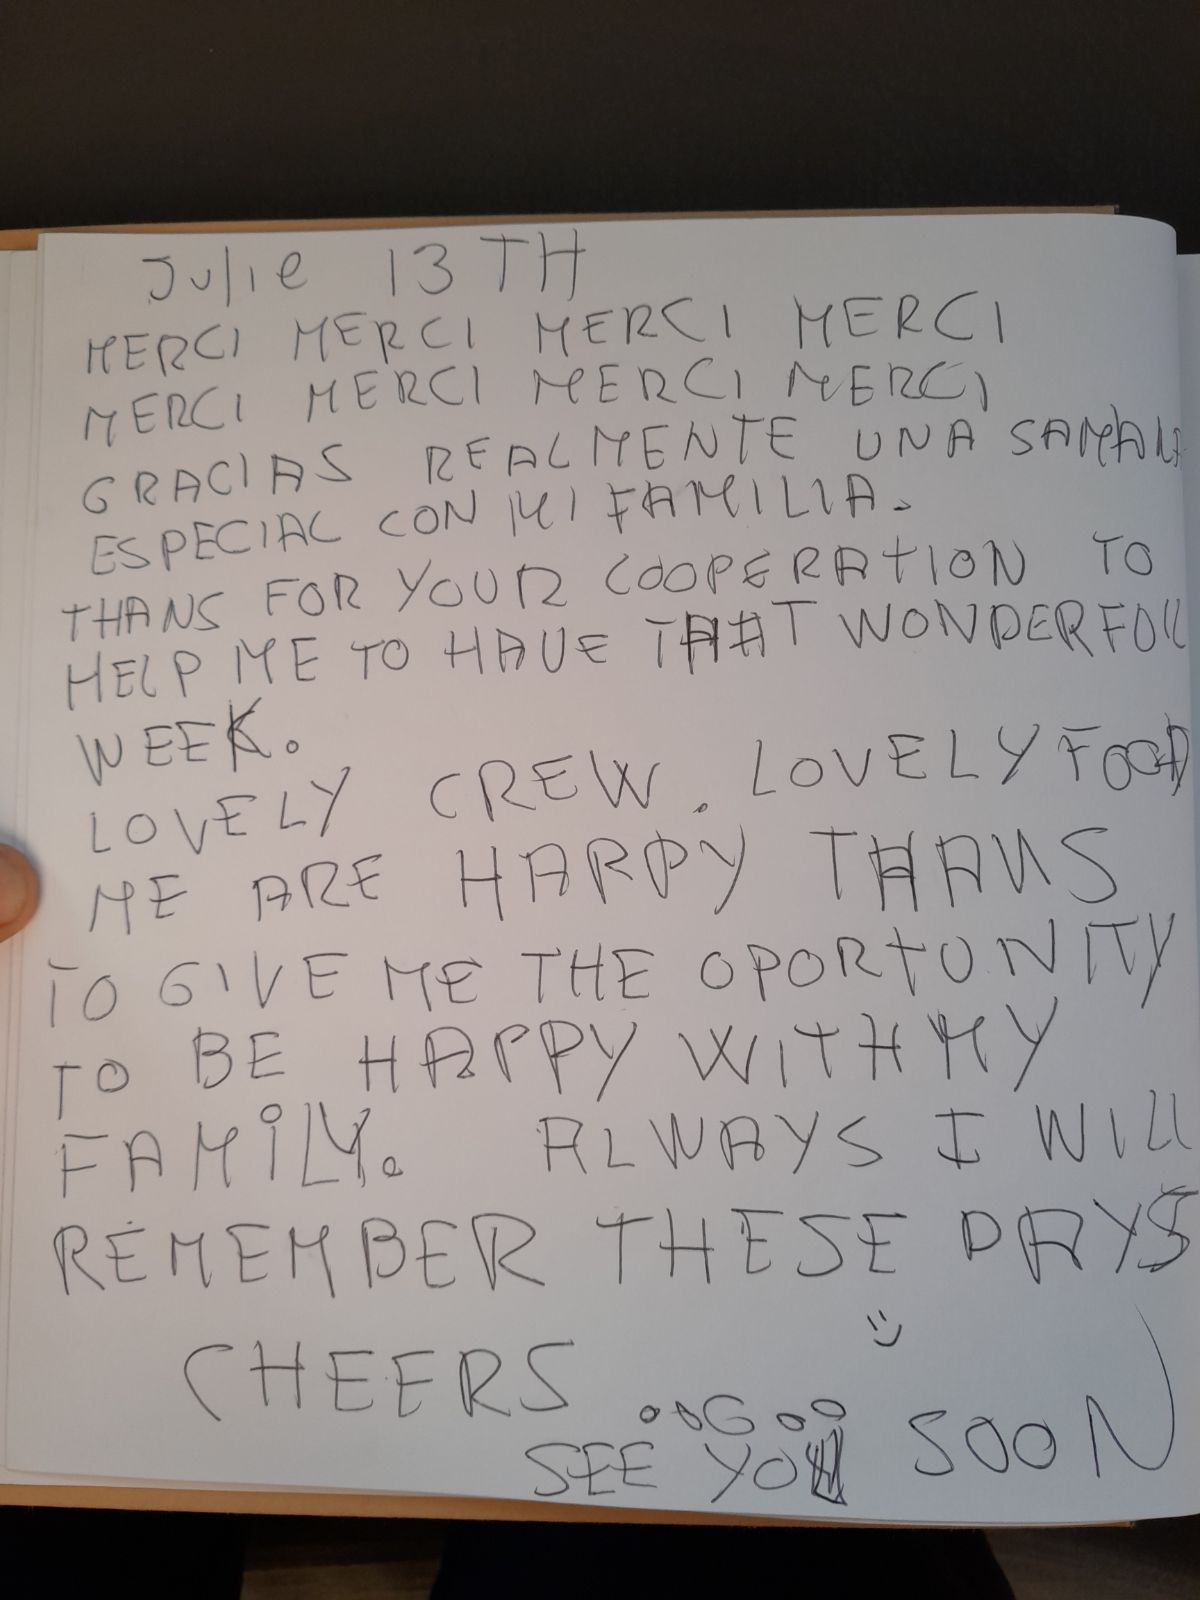 Julie 13TH
MERCI MERCI MERCI MERCI
MERCI MERCI MERCI MERCI
GRACIAS REALMENTE UNA SAMANA
ESPECIAL CON MI FAMILIA.
THANS FOR YOUR COOPERATION TO
HELP ME TO HAVE THAT WONDERFOLL
WEEK.
LOVELY CREW. LOVELY FOOD
ME ARE HAPPY THANS
TO GIVE ME THE OPORTUNITY
TO BE HAPPY WITH MY
FAMILY. ALWAYS I WILL
REMEMBER THESE DAYS
CHEERS
SEE YOU SOON